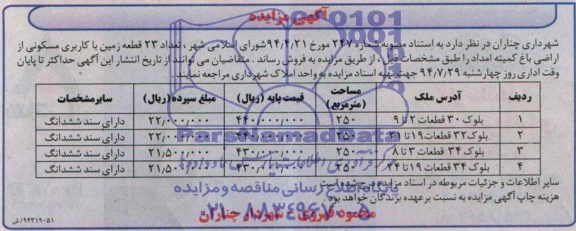 آگهی مزایده
شهرداری چناران در نظر دارد به استناد مصوبه شماره ۲۴۷ مورخ ۹۴/۴/۲۱ شورای اسلامی شهر، تعداد ۲۳ قطعه زمین با کاربری مسکونی از
اراضی باغ کمیته امداد را طبق مشخصات ذیل، از طریق مزایده به فروش رساند. متقاضیان می توانند از تاریخ انتشار این آگهی حداکثر تا پایان
وقت اداری روز چهارشنبه ۹۴/۷/۲۹ جهت تهیه اسناد مزایده به واحد املاک شهرداری مراجعه نمایند.
ردیف آدرس ملک مساحت (مترمربع) قیمت پایه (ریال) مبلغ سپرده (ریال) سایرمشخصات
۱ بلوک ۳۰ قطعات ۲ تا ۹ ۲۵۰ ۴۴۰,۰۰۰,۰۰۰ ۲۲,۰۰۰,۰۰۰ دارای سند ششدانگ
۲ بلوک ۳۲ قطعات ۱۹ تا ۲۱ ۲۵۰ ۲۲,۰۰۰,۰۰۰ دارای سند ششدانگ
۳ بلوک ۳۴ قطعات ۳ تا ۸ ۲۵۰ ۴۳۰,۰۰۰,۰۰۰ ۲۱,۵۰۰,۰۰۰ دارای سند ششدانگ
۴ بلوک ۳۴ قطعات ۱۹ تا ۲۴ ۲۵۰ ۴۳۰,۰۰۰,۰۰۰ دارای سند ششدانگ
سایر اطلاعات و جزئیات مربوطه در اسناد مزایده درج شده است
هزینه چاپ آگهی مزایده به نسبت بر عهده برندگان خواهد بود.
شهردار چناران
۹۴۳۱۹۰۵۱/ش
ParsNamadData
پایگاه اطلاع رسانی مناقصه و مزایده
۰۲۱-۸۸۳۴۹۶۷۰-۵